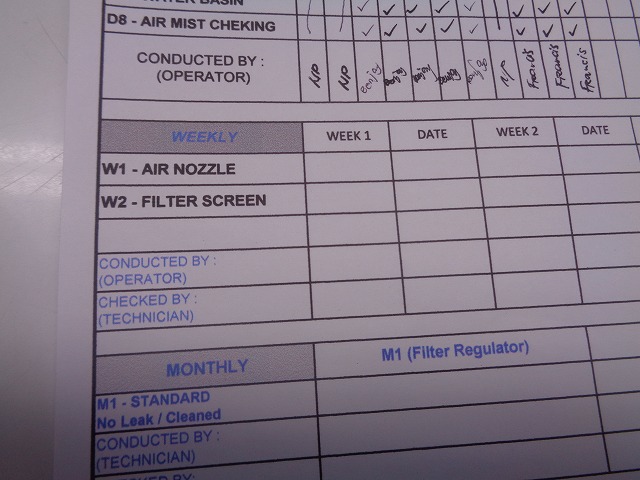 WATER BASIN
D8 - AIR MIST CHEKING
CONDUCTED BY :
(OPERATOR)
N/P N/P eenjoy enjoy enjoy N/P Francis Francis Francis
WEEKLY WEEK 1 DATE WEEK 2 DATE
W1 - AIR NOZZLE
W2 - FILTER SCREEN
CONDUCTED BY :
(OPERATOR)
CHECKED BY :
(TECHNICIAN)
MONTHLY M1 (Filter Regulator)
M1 - STANDARD
No Leak / Cleaned
CONDUCTED BY :
(TECHNICIAN)
CHECKED BY: